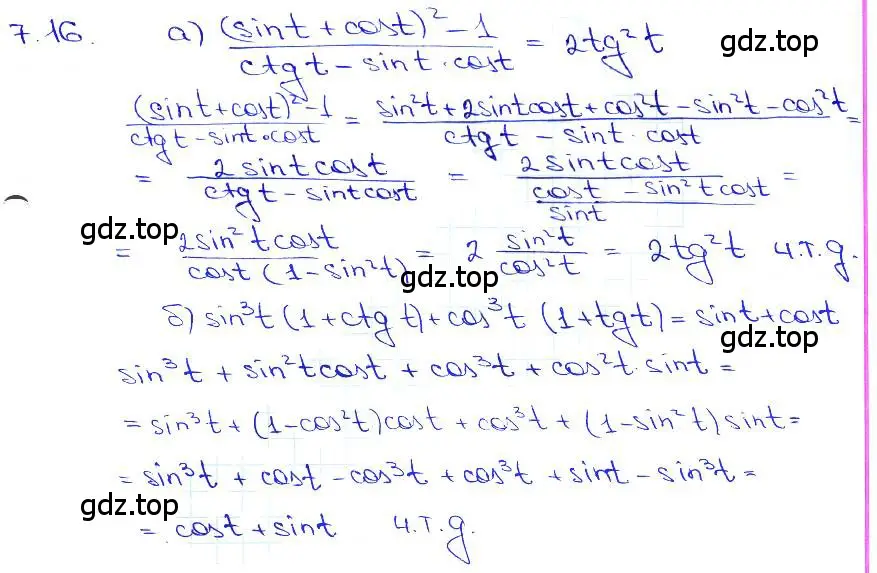 7.16. а) ((sint + cost)² - 1)/(ctgt - sint · cost) = 2tg²t
gdz.top
((sint + cost)² - 1)/(ctgt - sint · cost) = (sin²t + 2sintcost + cos²t - sin²t - cos²t)/(ctgt - sint · cost) =
= (2sintcost)/(ctgt - sintcost) = (2sintcost)/((cost - sin²tcost)/sint) =
gdz.top
= (2sin²tcost)/(cost(1 - sin²t)) = 2 (sin²t)/(cos²t) = 2tg²t ч.т.д.
gdz.top
б) sin³t (1 + ctg t) + cos³t (1 + tgt) = sint + cost
gdz.top
sin³t + sin²tcost + cos³t + cos²t · sint =
= sin³t + (1 - cos²t)cost + cos³t + (1 - sin²t)sint =
= sin³t + cost - cos³t + cos³t + sint - sin³t =
gdz.top
= cost + sint ч.т.д.
gdz.top